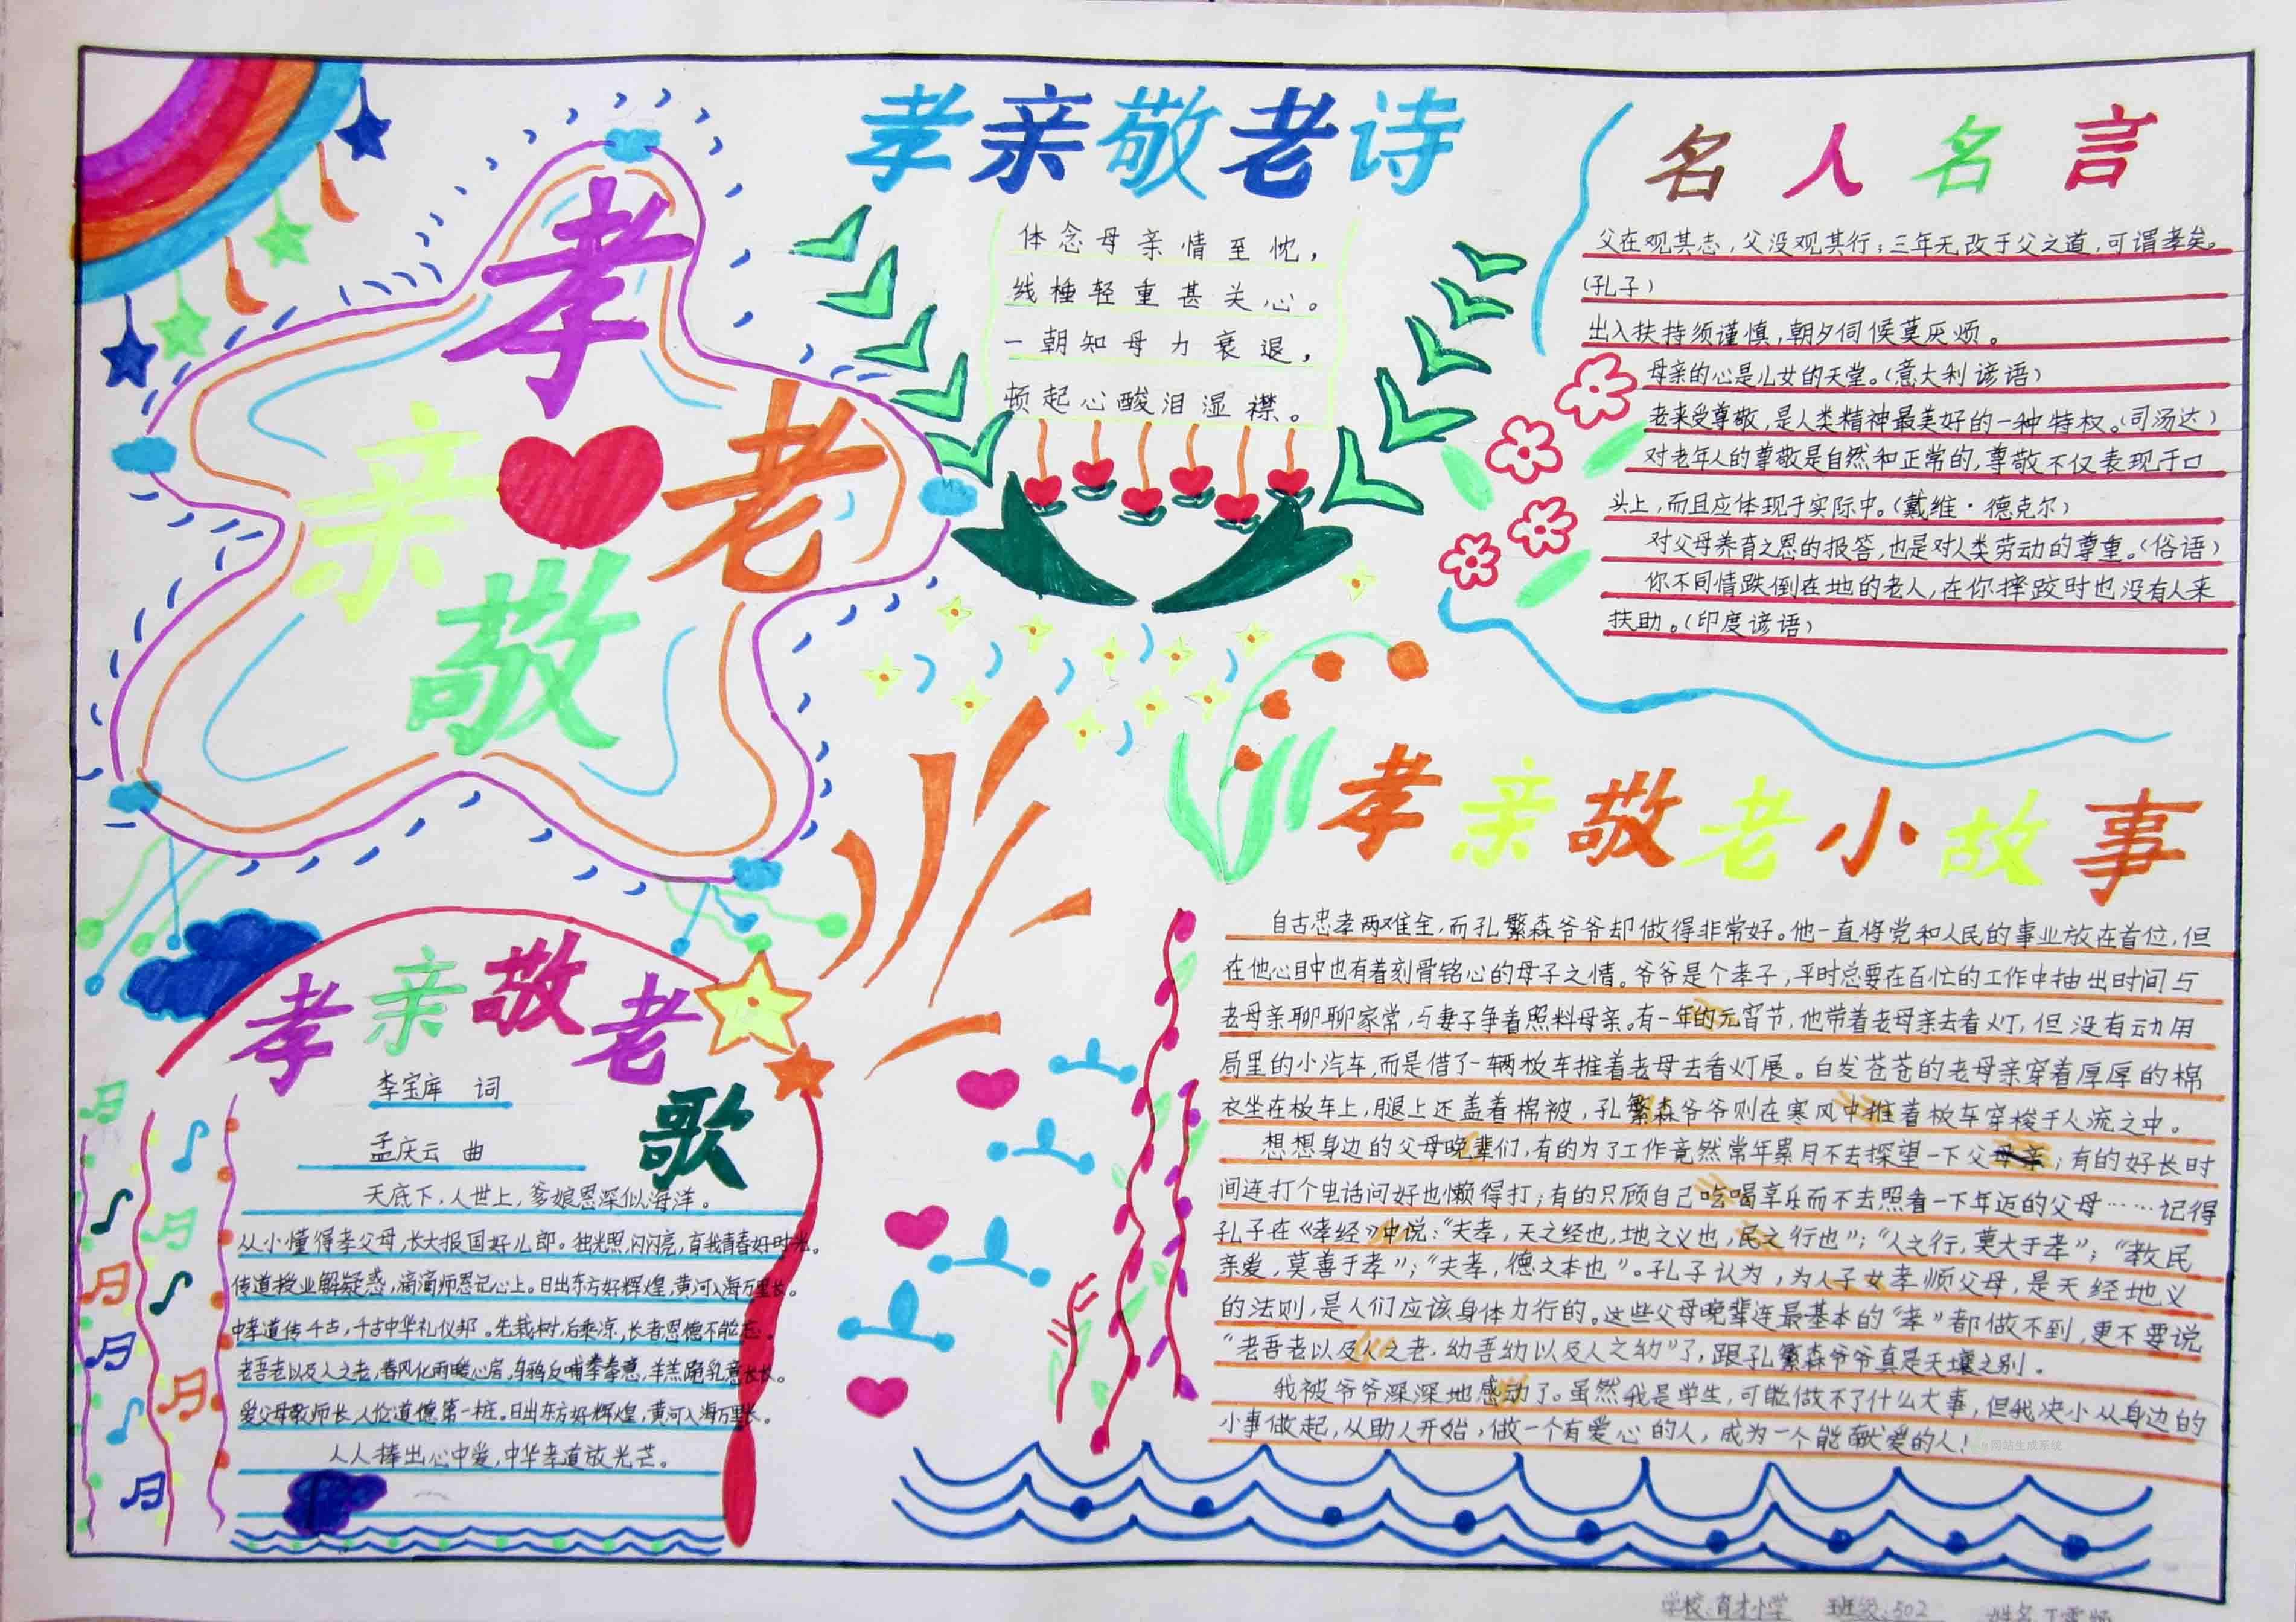 孝
亲 老
敬
孝亲敬老诗
体念母亲情至忱，
线棰轻重甚关心。
一朝知母力衰退，
顿起心酸泪湿襟。
名人名言
父在观其志，父没观其行；三年无改于父之道，可谓孝矣。
(孔子)
出入扶持须谨慎，朝夕伺候莫厌烦。
母亲的心是儿女的天堂。(意大利谚语)
老来受尊敬，是人类精神最美好的一种特权。(司汤达)
对老年人的尊敬是自然和正常的，尊敬不仅表现于口
头上，而且应体现于实际中。(戴维·德克尔)
对父母养育之恩的报答，也是对人类劳动的尊重。(俗语)
你不同情跌倒在地的老人，在你摔跤时也没有人来
扶助。(印度谚语)
孝亲敬老歌
李宝库 词
孟庆云 曲
天底下，人世上，爹娘恩深似海洋。
从小懂得孝父母，长大报国好儿郎。烛光照，闪闪亮，育我青春好时光。
传道授业解疑惑，滴滴师恩记心上。日出东方好辉煌，黄河入海万里长。
中孝道传千古，千古中华礼仪邦。先栽树，后乘凉，长者恩德不能忘。
老吾老以及人之老，春风化雨暖心房。乌鸦反哺拳拳意，羊羔跪乳意长长。
爱父母敬师长人伦道德第一桩。日出东方好辉煌，黄河入海万里长。
人人捧出心中爱，中华孝道放光芒。
孝亲敬老小故事
自古忠孝两难全，而孔繁森爷爷却做得非常好。他一直将党和人民的事业放在首位，但
在他心目中也有着刻骨铭心的母子之情。爷爷是个孝子，平时总要在百忙的工作中抽出时间与
老母亲聊聊家常，与妻子争着照料母亲。有一年的元宵节，他带着老母亲去看灯，但没有动用
局里的小汽车，而是借了一辆板车推着老母去看灯展。白发苍苍的老母亲穿着厚厚的棉
衣坐在板车上，腿上还盖着棉被，孔繁森爷爷则在寒风中推着板车穿梭于人流之中。
想想身边的父母晚辈们，有的为了工作竟然常年累月不去探望一下父母亲；有的好长时
间连打个电话问好也懒得打；有的只顾自己吃喝享乐而不去照看一下年迈的父母……记得
孔子在《孝经》中说：“夫孝，天之经也，地之义也，民之行也”；“人之行，莫大于孝”；“教民
亲爱，莫善于孝”；“夫孝，德之本也”。孔子认为，为人子女孝顺父母，是天经地义
的法则，是人们应该身体力行的。这些父母晚辈连最基本的“孝”都做不到，更不要说
“老吾老以及人之老，幼吾幼以及人之幼”了，跟孔繁森爷爷真是天壤之别。
我被爷爷深深地感动了。虽然我是学生，可能做不了什么大事，但我决小从身边的
小事做起，从助人开始，做一个有爱心的人，成为一个能献爱的人！
网站生成系统
学校：育才小学 班级：502 姓名